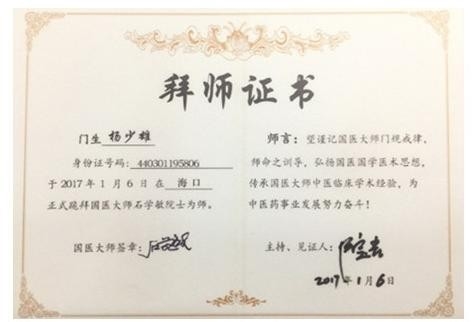 拜师证书
门生 杨少雄
身份证号码：440301195806
于 2017 年 1 月 6 日在 海口
正式跪拜国医大师石学敏院士为师。
国医大师签章：
师言：望谨记国医大师门规戒律，
师命之训导，弘扬国医国学医术思想，
传承国医大师中医临床学术经验，为
中医药事业发展努力奋斗！
主持、见证人：
2017年1月6日